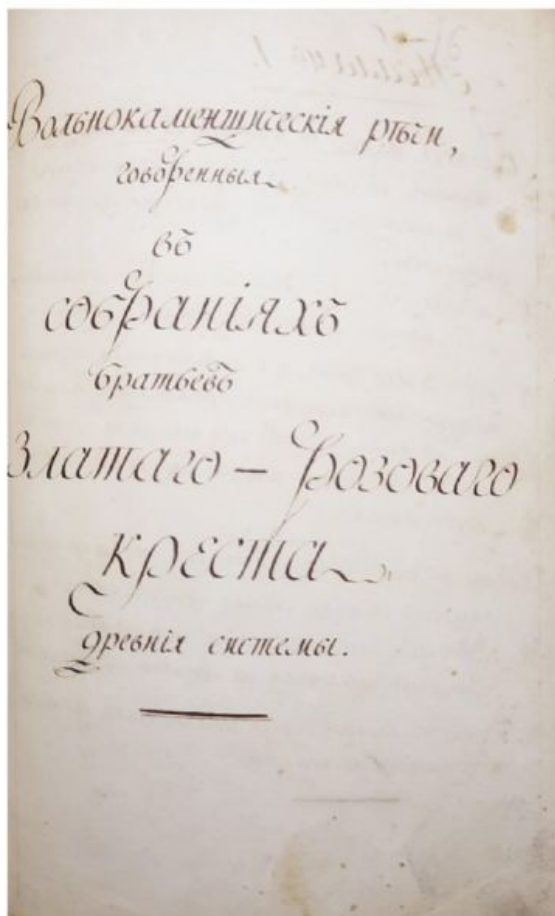 Вольнокаменщическія рѣчи,
говоренныя
въ
собраніяхъ
братьевъ
Златаго — розоваго
креста
древнія системы.